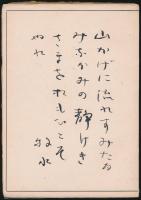 山かげに流れすみたる
みなかみの静けき
さまをれしこそ
ぬれ
牧水